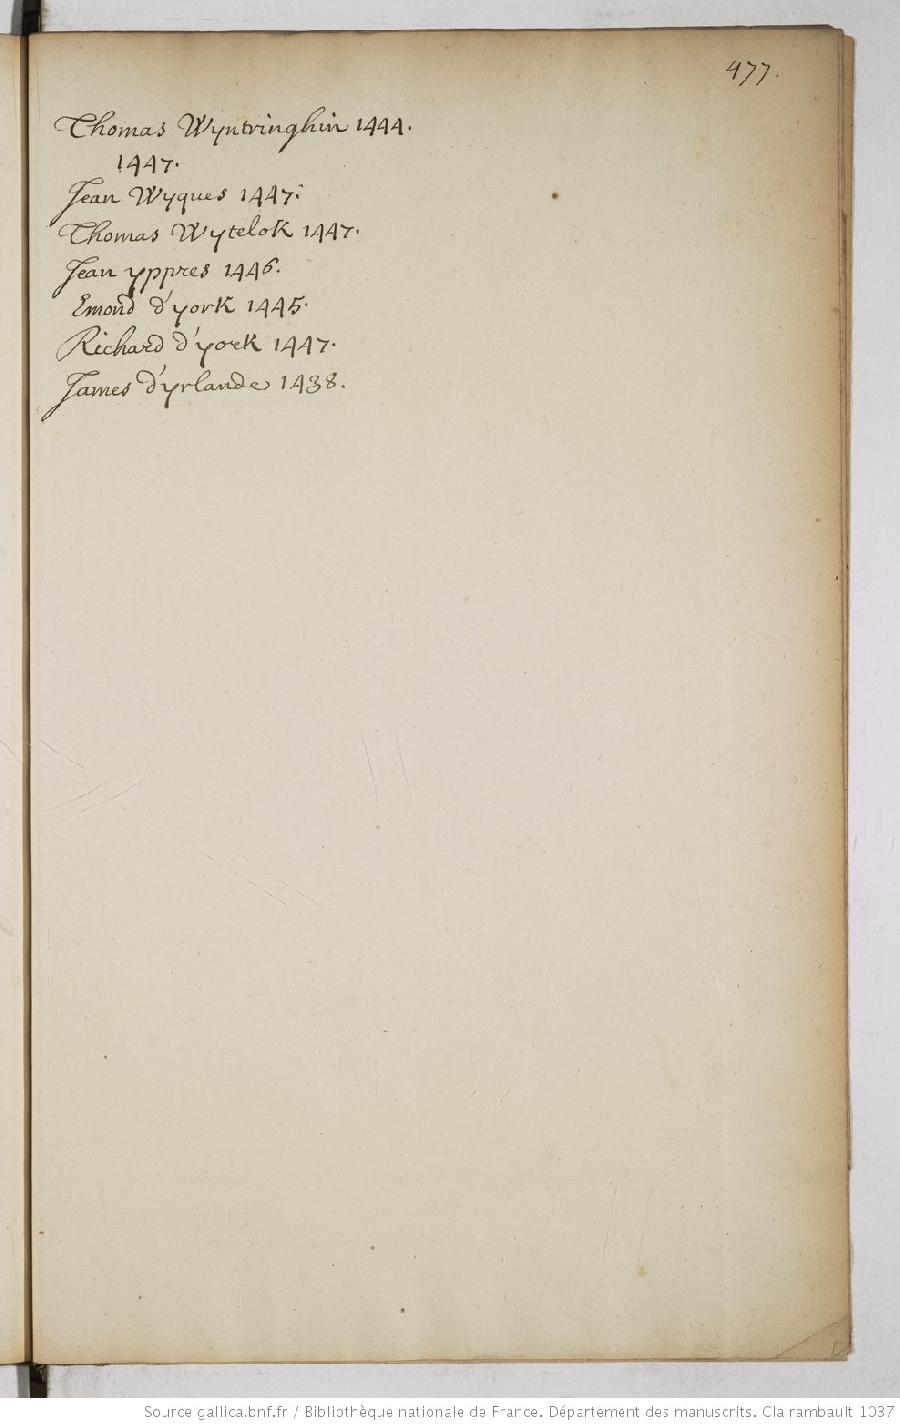 477.
Thomas Wyntringhin 1444.
1447.
Jean Wyques 1447.
Thomas Wytelok 1447.
Jean yppres 1446.
Emond d'york 1445.
Richard d'york 1447.
James d'yrlande 1438.
Source gallica.bnf.fr / Bibliothèque nationale de France. Département des manuscrits. Clairambault 1037